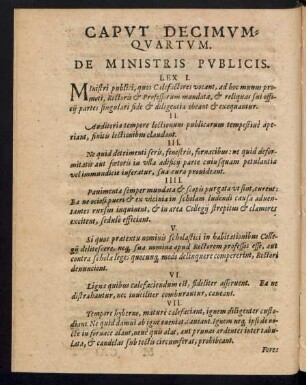 CAPVT DECIMVM-
QVARTVM.
DE MINISTRIS PVBLICIS.
LEX I.
Ministri publici, quos Calefactores vocant, ad hoc munus pro-
moti, Rectoris & Professorum mandata, & reliquas sui offi-
cij partes singulari fide & diligentia obeant & exequantur.
II.
Auditoria tempore lectionum publicarum tempestivè ape-
riant, finitis lectionibus claudant.
III.
Ne quid detrimenti seris, fenestris, fornacibus: ne quid defor-
mitatis aut fœtoris in vlla adificij parte cuiusquam petulantia
vel immundicie inferatur, sua cura provideant.
IIII.
Pavimenta semper mundata & scopis purgata vt sint, curent:
Ea ne ociosi pueri & ex vicinia in scholam ludendi causa adven-
tantes rursus inquinent, & in area Collegij strepitus & clamores
excitent, sedulò efficiant.
V.
Si quos prætextu nominis scholastici in habitationibus Colle-
gij delitescere, neq; sua nomina apud Rectorem professos esse, aut
contra scholæ leges quocunq; modo delinquere compererint, Rectori
denuncient.
VI.
Lignæ quibus calefaciendum est, fideliter asservent. Ea ne
distrahantur, nec inutiliter comburantur, caveant.
VII.
Tempore hyberno, maturè calefaciant, ignem diligenter custo-
diant. Ne quid damni ab igne eveniat, caveant. Ignem neq; ipsi de no-
cte in fornace alant, neve quis alat, aut prunas ardentes inter tabu-
lata, & candelas sub tectis circumferat, prohibeant.
Fores